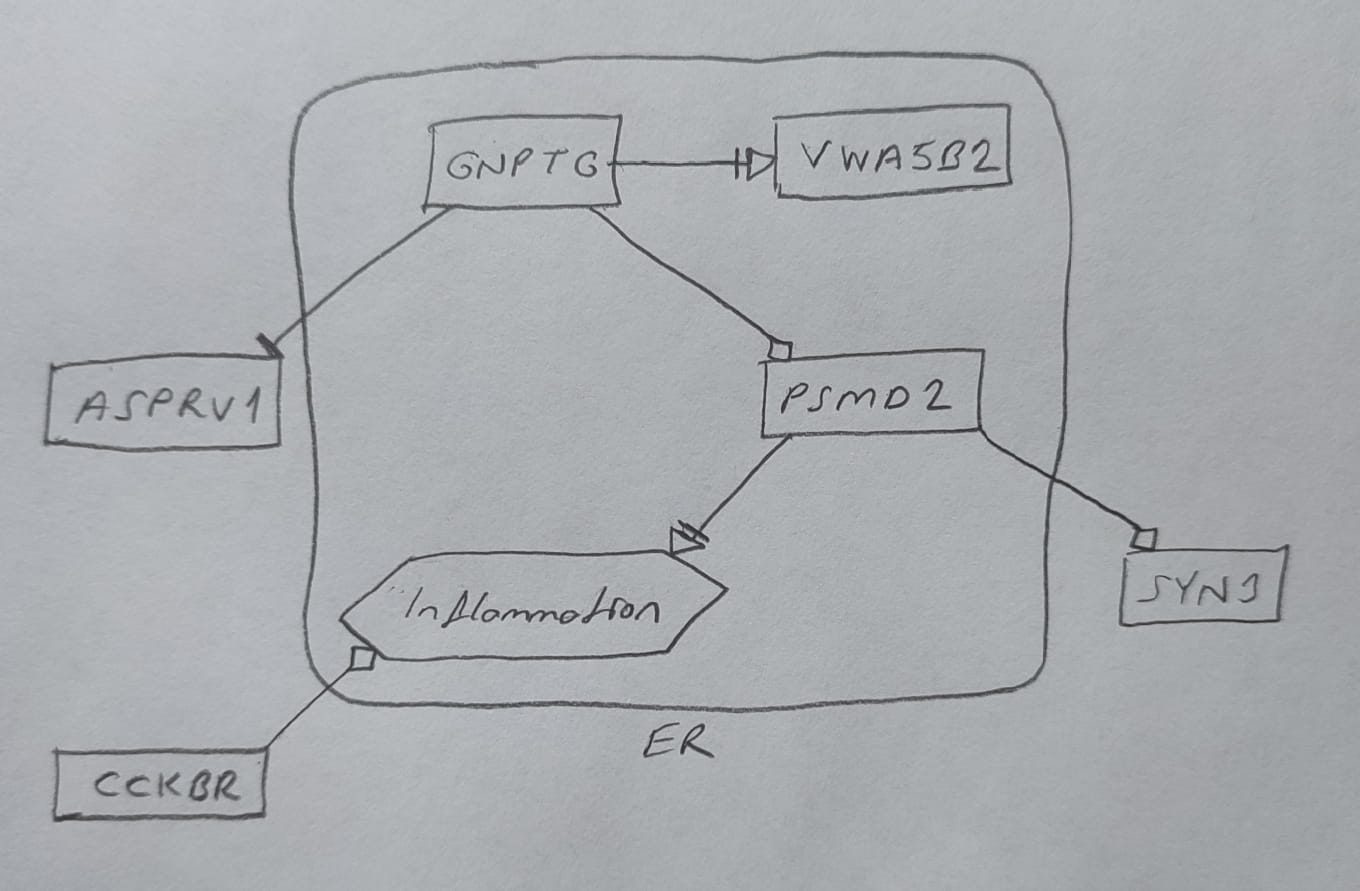 GNPTG
VWA5B2
ASPRV1
PSMD2
Inflammation
SYN1
ER
CCKBR